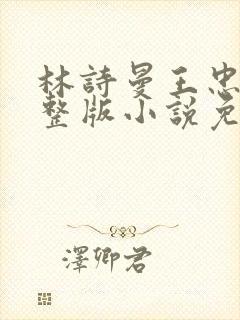 林詩曼王忠
整版小說免
澤卿君